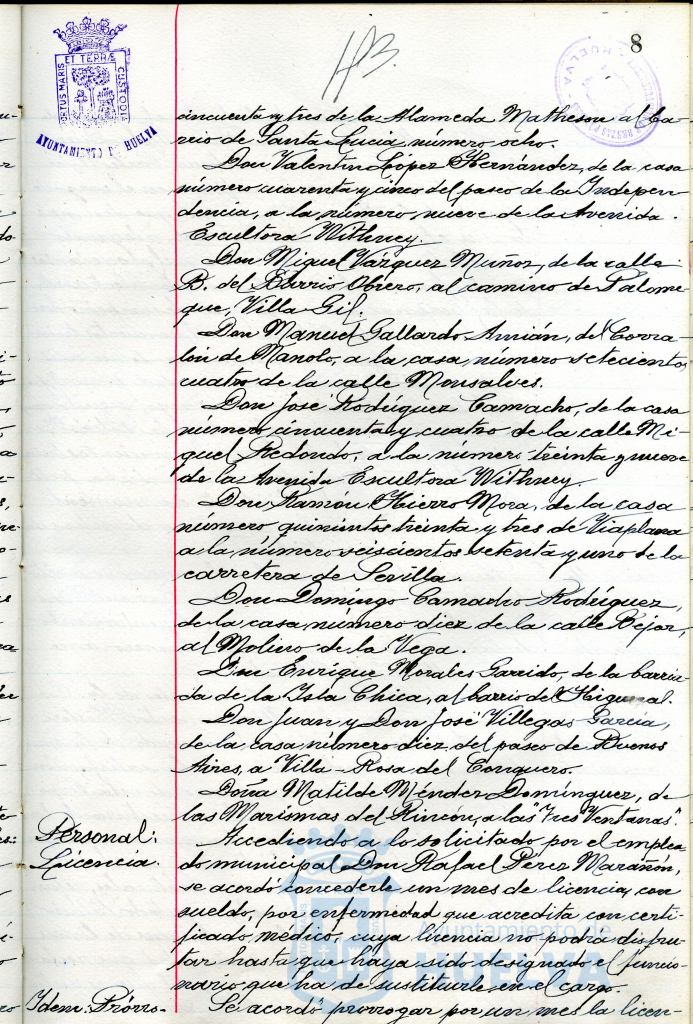 8
PORTUS MARIS ET TERRÆ CUSTODIA
AYUNTAMIENTO DE HUELVA
cincuenta y tres de la Alameda Mathesme al ba-
rrio de Santa Lucia, número ocho.
Don Valentin López Hernández, de la casa
número cuarenta y cinco del paseo de la Indepen-
dencia, a la número nueve de la Avenida
Escultora Withney.
Don Miguel Vázquez Muñoz, de la calle
B. del Barrio Obrero, al camino de Palome-
que, Villa Gil.
Don Manuel Gallardo Amián, del Corra-
lón de Manolo, a la casa, número setecientos
cuatro de la calle Monsalves.
Don José Rodríguez Camacho, de la casa
número cincuenta y cuatro de la calle Mi-
guel Redondo, a la número treinta y nueve
de la Avenida Escultora Withney.
Don Ramón Hierro Mora, de la casa
número quinientos treinta y tres de Viaplana
a la número seiscientos setenta y uno de la
carretera de Sevilla.
Don Domingo Camacho Rodríguez,
de la casa, número diez de la calle Béjar,
al Molino de la Vega.
Don Enrique Morales Garrido, de la barria-
da de la Isla Chica, al barrio del Higueral.
Don Juan y Don José Villegas García,
de la casa, número diez, del paseo de Buenos
Aires, a Villa-Rosa del Conquero.
Doña Matilde Méndez Domínguez, de
las Marismas del Rincón, a las "Tres Ventanas".
Personal:
Licencia.
Accediendo a lo solicitado por el emplea-
do municipal Don Rafael Pérez Marañón,
se acordó concederle un mes de licencia, con
sueldo, por enfermedad que acredita con certi-
ficado, médico, cuya licencia no podrá disfru-
tar hasta que haya sido designado el funcio-
nario que ha de sustituirle en el cargo.
Idem: Prórro-
Se acordó prorrogar por un mes la licen-
Ayuntamiento de
HUELVA